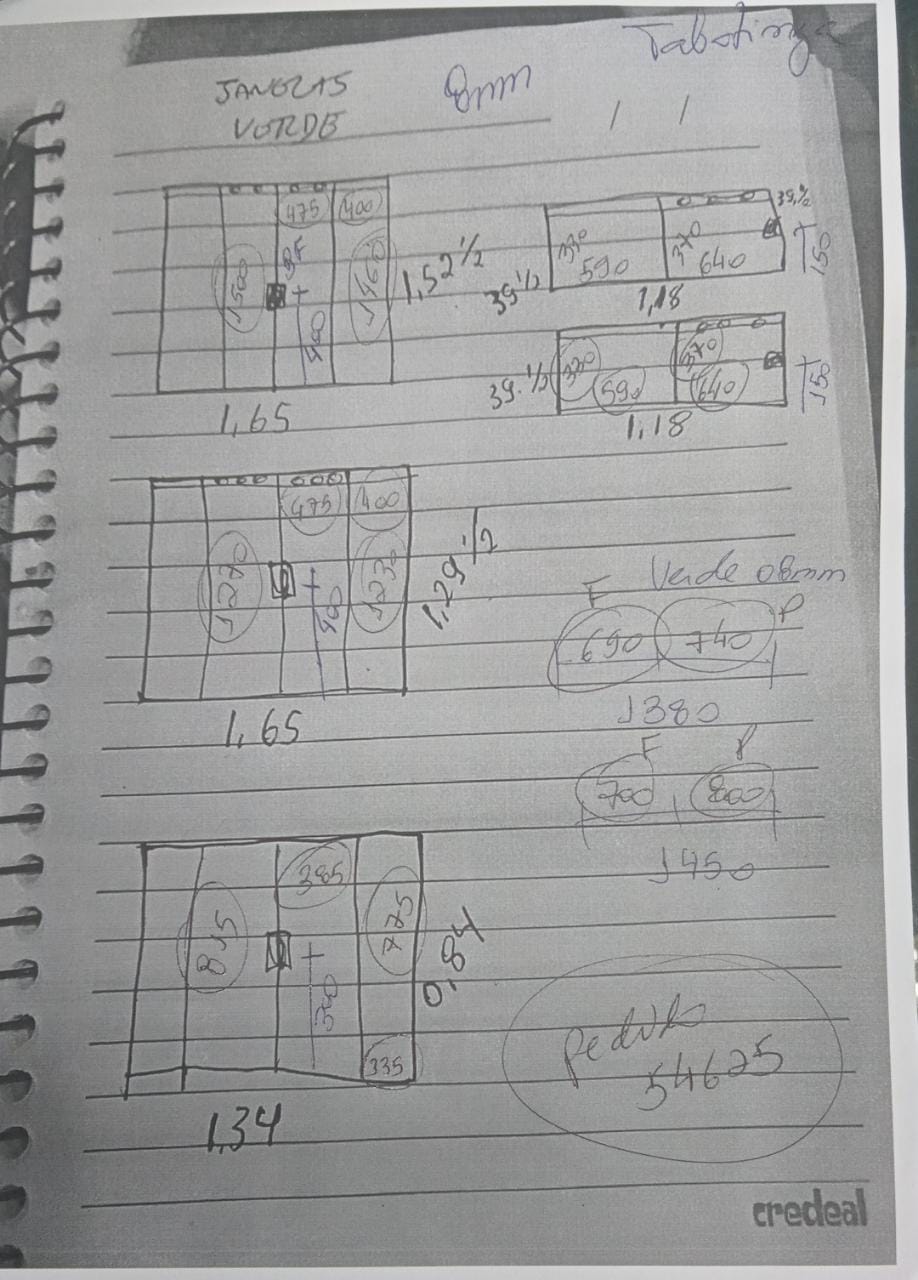 Tabatinga
JANELAS 8mm
VERDE / /
475 400
1500
1460
400
1,52 1/2
1,65
39 1/2
330 370
590 640
39 1/2
150
1,18
39 1/2
330 370
590 640
150
1,18
475 400
1270
1230
400
1,29 1/2
1,65
Verde 08mm
F P
690 740
1380
F P
700 800
1450
385
815
775
300
335
0,84
1,34
Pedido
54625
credeal